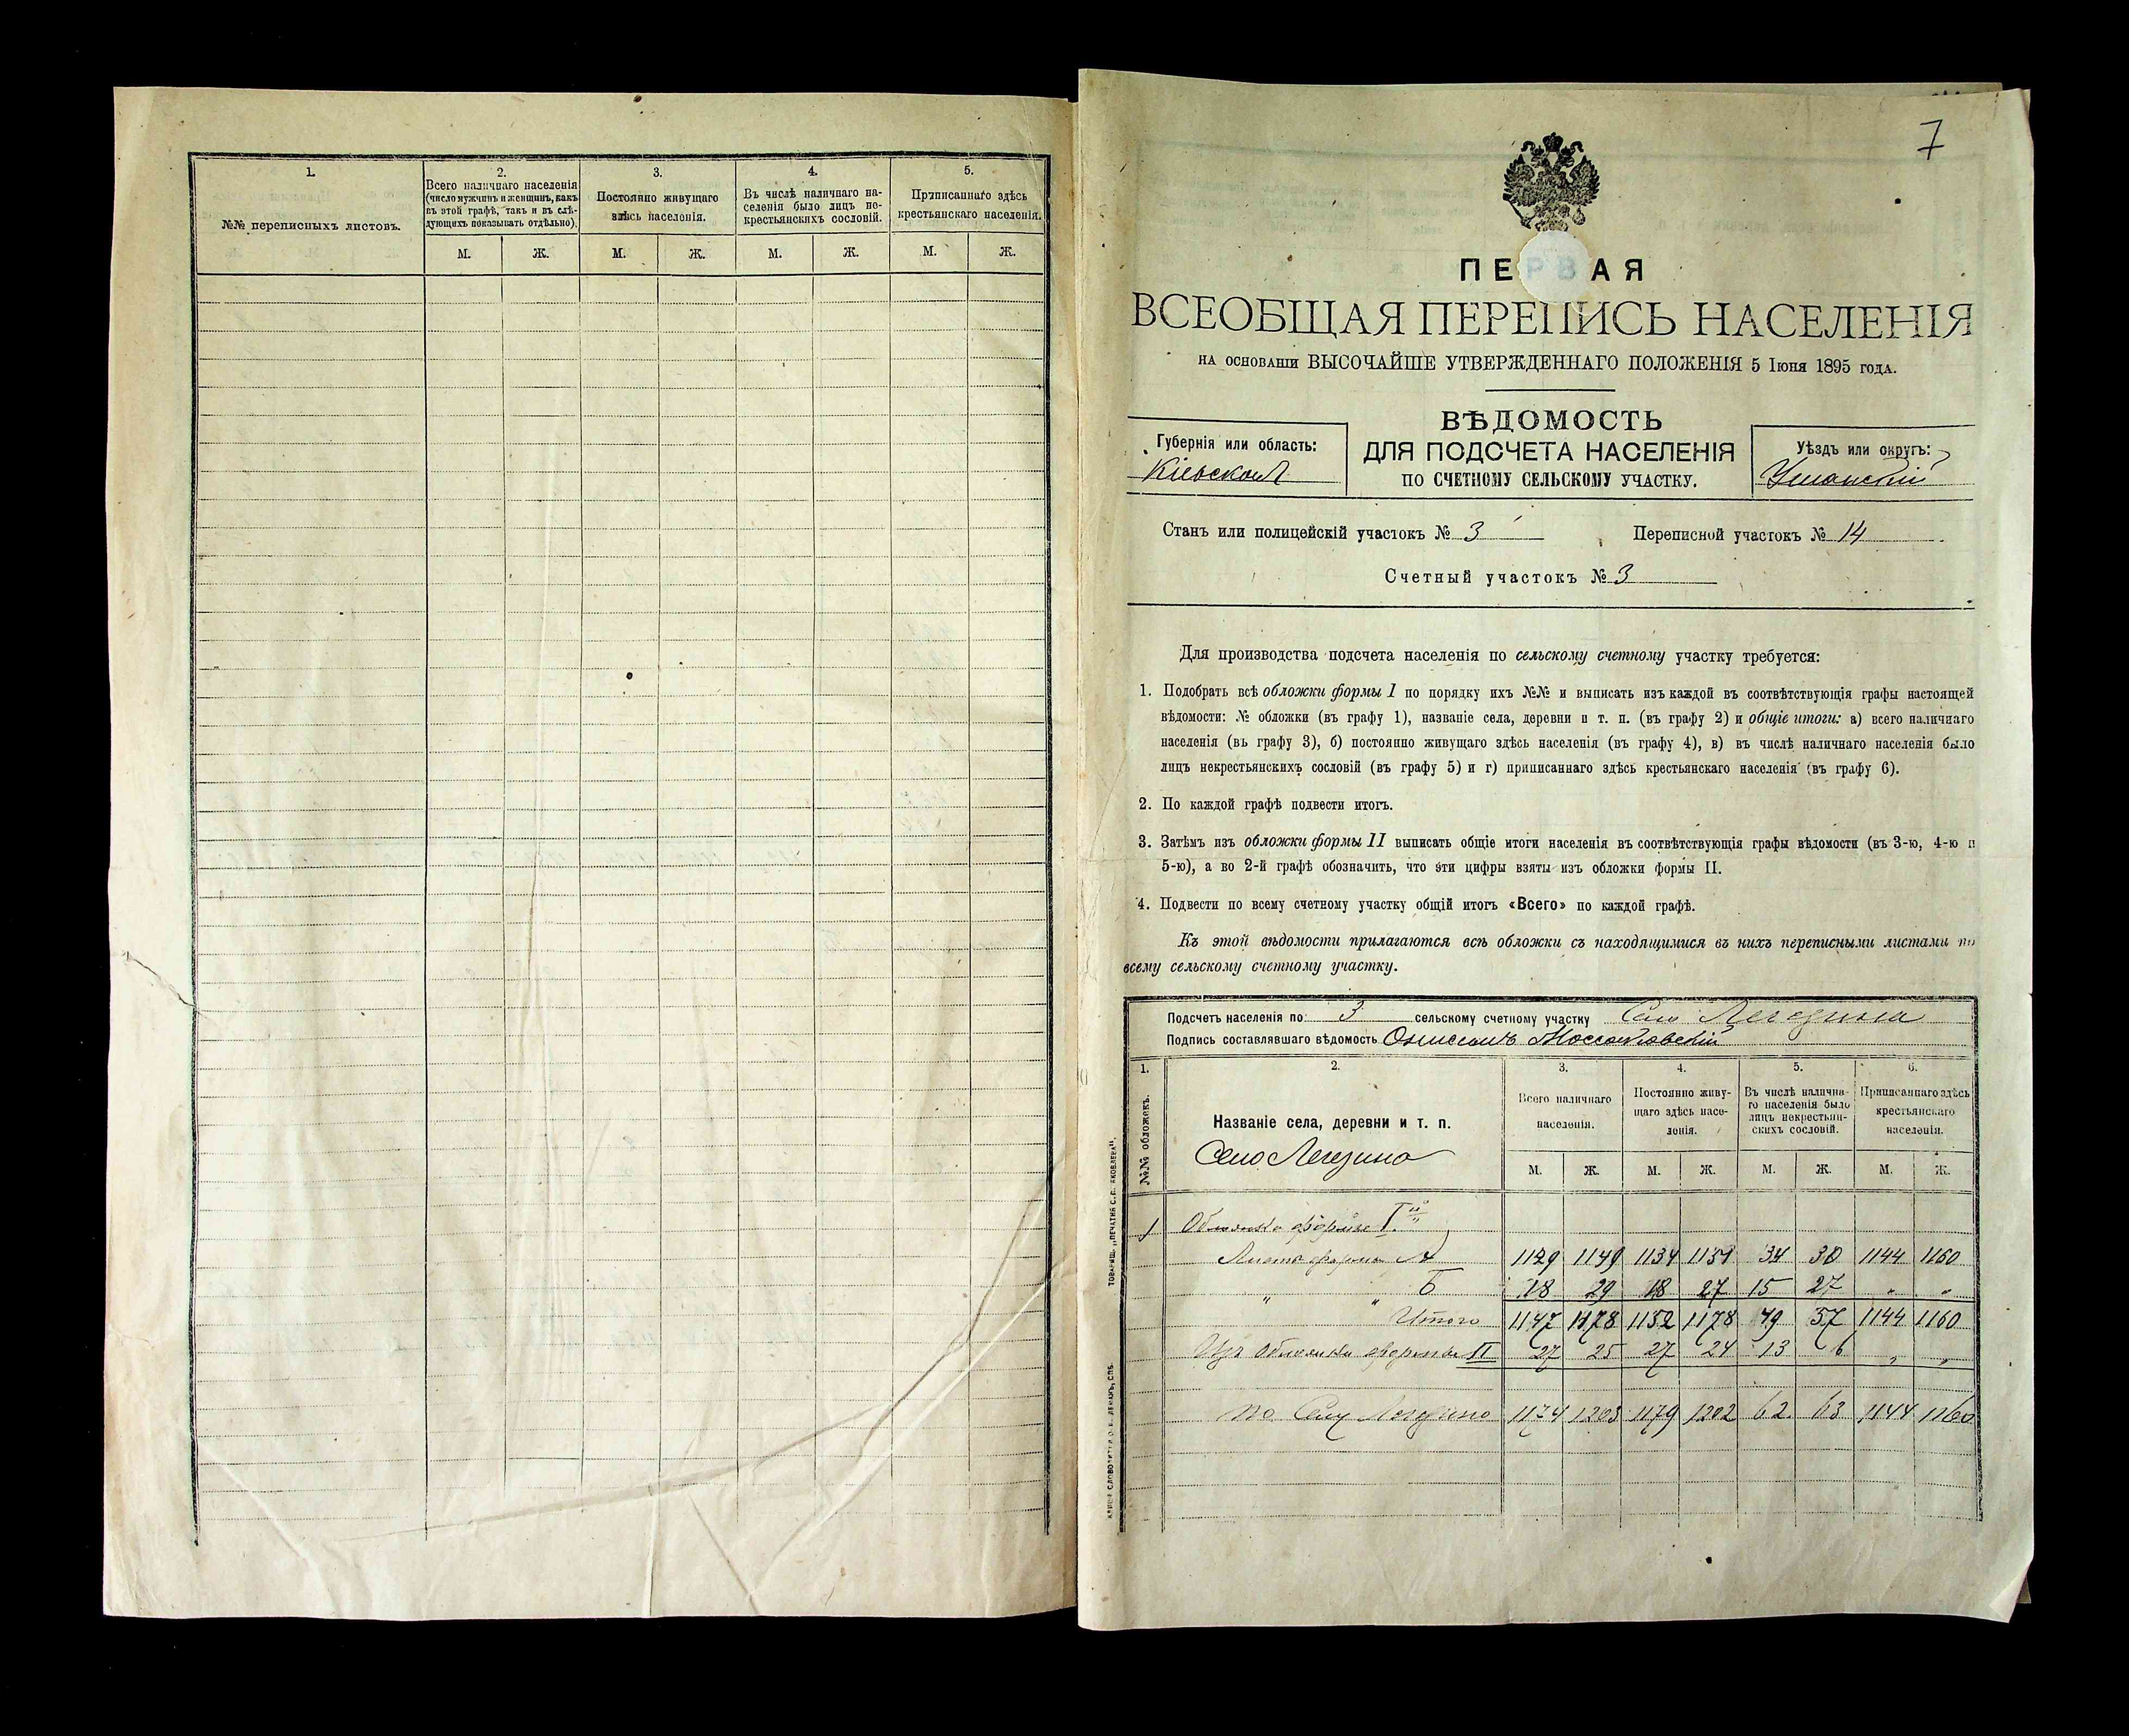 1.
№№ переписныхъ листовъ.
2.
Всего наличнаго населенія
(число мужчинъ и женщинъ, какъ
въ этой графѣ, такъ и въ слѣ-
дующихъ показывать отдѣльно).
3.
Постоянно живущаго
здѣсь населенія.
4.
Въ числѣ наличнаго на-
селенія было лицъ не-
крестьянскихъ сословій.
5.
Приписаннаго здѣсь
крестьянскаго населенія.
М. Ж. М. Ж. М. Ж. М. Ж.
7
ПЕРВАЯ
ВСЕОБЩАЯ ПЕРЕПИСЬ НАСЕЛЕНІЯ
НА ОСНОВАНІИ ВЫСОЧАЙШЕ УТВЕРЖДЕННАГО ПОЛОЖЕНІЯ 5 Іюня 1895 ГОДА.
Губернія или область:
Кіевская
ВѢДОМОСТЬ
ДЛЯ ПОДСЧЕТА НАСЕЛЕНІЯ
ПО СЧЕТНОМУ СЕЛЬСКОМУ УЧАСТКУ.
Уѣздъ или округъ:
Уманскій
Станъ или полицейскій участокъ № 3 Переписной участокъ № 14
Счетный участокъ № 3
Для производства подсчета населенія по сельскому счетному участку требуется:
1. Подобрать всѣ обложки формы I по порядку ихъ №№ и выписать изъ каждой въ соотвѣтствующія графы настоящей
вѣдомости: № обложки (въ графу 1), названіе села, деревни и т. п. (въ графу 2) и общіе итоги: а) всего наличнаго
населенія (въ графу 3), б) постоянно живущаго здѣсь населенія (въ графу 4), в) въ числѣ наличнаго населенія было
лицъ некрестьянскихъ сословій (въ графу 5) и г) приписаннаго здѣсь крестьянскаго населенія (въ графу 6).
2. По каждой графѣ подвести итогъ.
3. Затѣмъ изъ обложки формы II выписать общіе итоги населенія въ соотвѣтствующія графы вѣдомости (въ 3-ю, 4-ю и
5-ю), а во 2-й графѣ обозначить, что эти цифры взяты изъ обложки формы II.
4. Подвести по всему счетному участку общій итогъ «Всего» по каждой графѣ.
Къ этой вѣдомости прилагаются всѣ обложки съ находящимися въ нихъ переписными листами по
всему сельскому счетному участку.
Подсчетъ населенія по 3 сельскому счетному участку Село Легедзина
Подпись составлявшаго вѣдомость
1.
№№ обложекъ.
2.
Названіе села, деревни и т. п.
Село Легезино
3.
Всего наличнаго
населенія.
4.
Постоянно живу-
щаго здѣсь насе-
ленія.
5.
Въ числѣ налична-
го населенія было
лицъ некрестьян-
скихъ сословій.
6.
Приписаннаго здѣсь
крестьянскаго
населенія.
М. Ж. М. Ж. М. Ж. М. Ж.
1 Обложка формы I
Листъ формы А 1129 1149 1134 1151 34 30 1144 1160
" " Б 18 29 18 27 15 27 " "
Итого 1147 1178 1152 1178 49 57 1144 1160
Изъ обложки формы II 27 25 27 24 13 6 " "
по Селу Легезино 1174 1203 1179 1202 62 63 1144 1160
ТОВАРИЩ. „ПЕЧАТНЯ С. П. ЯКОВЛЕВА".